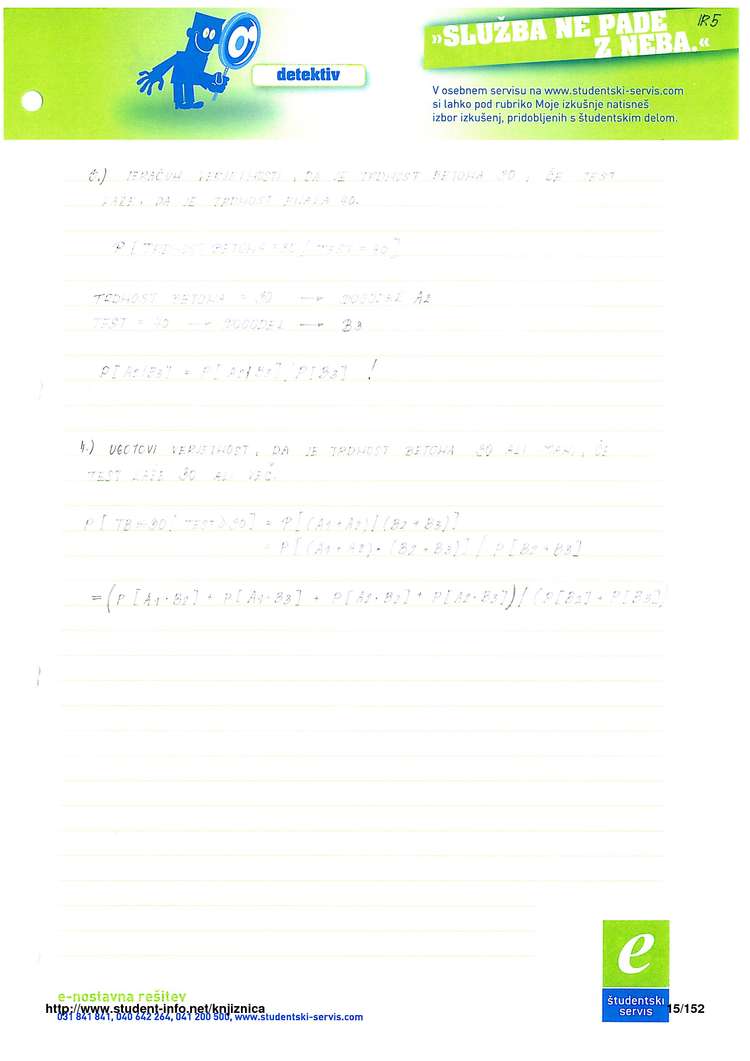 »SLUŽBA NE PADE
Z NEBA.«
IR5
detektiv
V osebnem servisu na www.studentski-servis.com
si lahko pod rubriko Moje izkušnje natisneš
izbor izkušenj, pridobljenih s študentskim delom.
IZRAČUN VERJETNOSTI, DA JE TRDNOST BETONA 30, ČE TEST
KAŽE, DA JE TRDNOST ENAKA 40.
P[TRDNOST BETONA = 30 / TEST = 40]
TRDNOST BETONA = 30 → DOGODEK A2
TEST = 40 → DOGODEK → B3
P[A2/B3] = P[A2·B3] / P[B3] !
4.) UGOTOVI VERJETNOST, DA JE TRDNOST BETONA 30 ALI MANJ, ČE
TEST KAŽE 30 ALI VEČ.
P[TB≤30 / TEST≥30] = P[(A1+A2)/(B2+B3)]
= P[(A1+A2)·(B2+B3)] / P[B2+B3]
= (P[A1·B2] + P[A1·B3] + P[A2·B2] + P[A2·B3]) / (P[B2] + P[B3])
e
študentski
servis
e-nostavna rešitev
http://www.student-info.net/knjiznica
15/152
031 841 841, 040 642 264, 041 200 500, www.studentski-servis.com